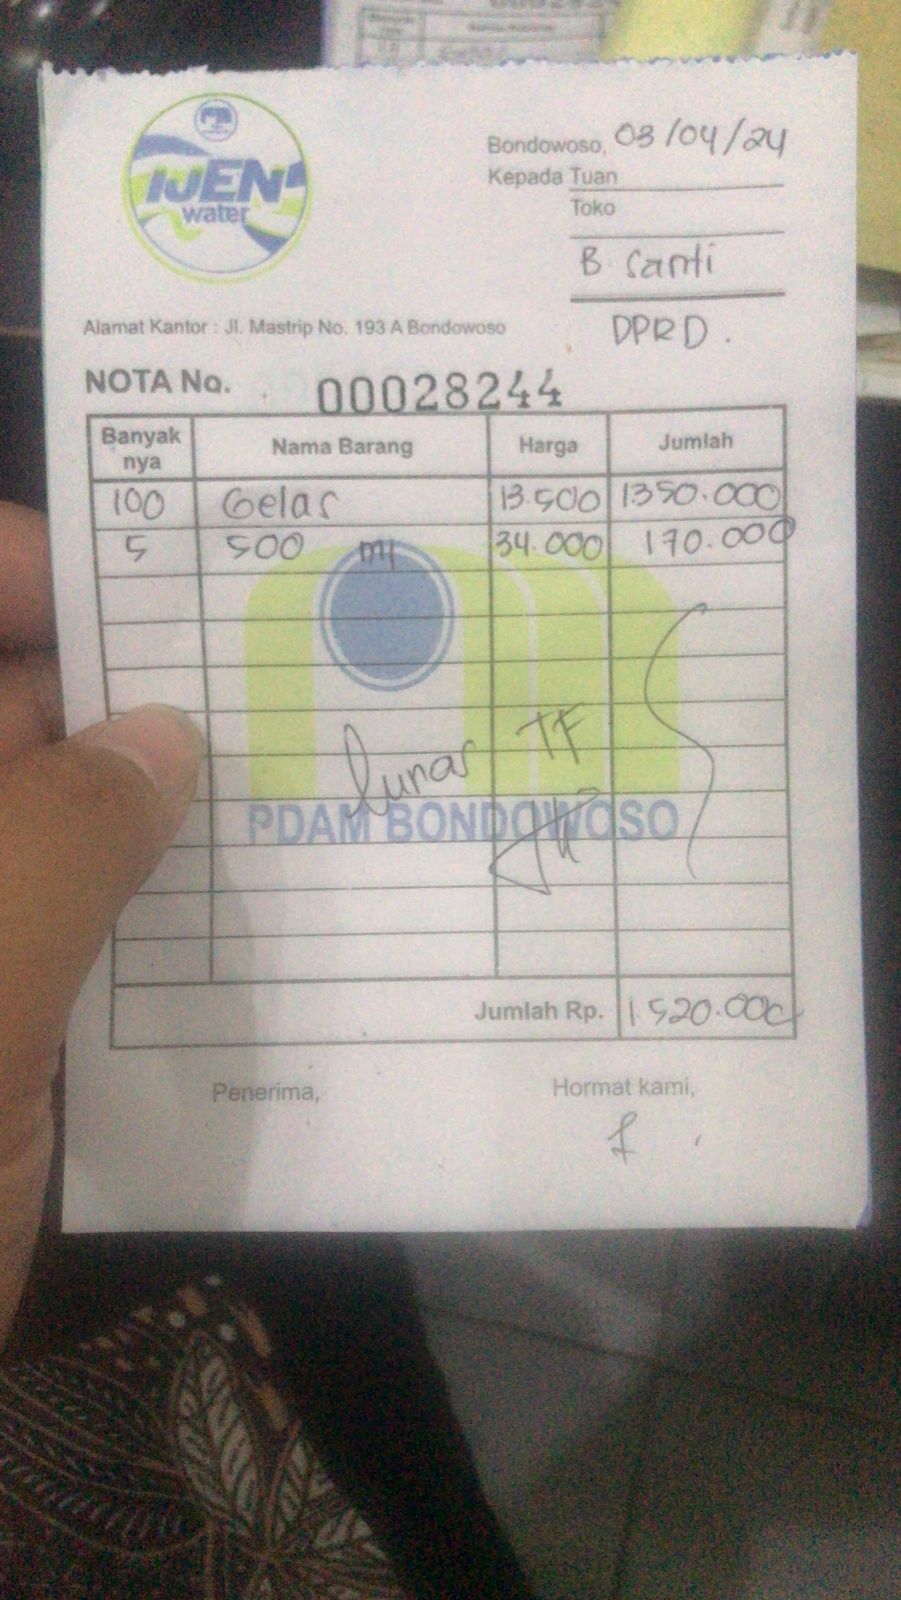 IJEN
water
Bondowoso, 03/04/24
Kepada Tuan
Toko
B. Santi
DPRD.
Alamat Kantor : Jl. Mastrip No. 193 A Bondowoso
NOTA No. 00028244
Banyak nya Nama Barang Harga Jumlah
100 Gelas 13.500 1.350.000
5 500 ml 34.000 170.000
lunas TF
PDAM BONDOWOSO
Jumlah Rp. 1.520.000
Penerima, Hormat kami,